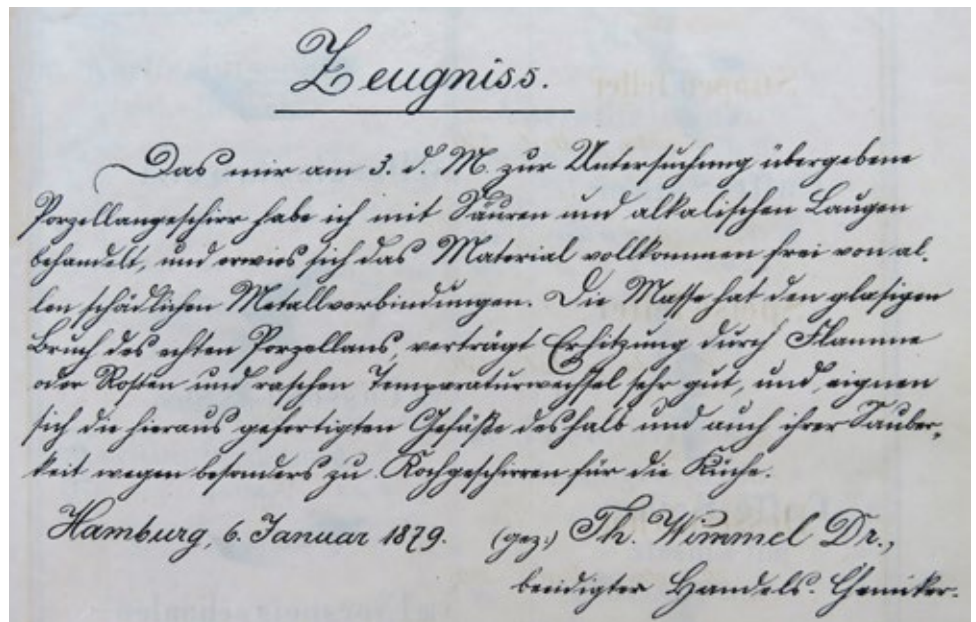 Zeugniss.
Das mir am 3. d. M. zur Untersuchung übergebene
Porzellangeschirr habe ich mit Säuren und alkalischen Laugen
behandelt, und erwies sich das Material vollkommen frei von al-
len schädlichen Metallverbindungen. Die Masse hat den glasigen
Bruch des echten Porzellans, verträgt Erhitzung durch Flamme
oder Rosten und raschen Temperaturwechsel sehr gut, und eignen
sich die hieraus gefertigten Gefäße deshalb und auch ihrer Sauber-
keit wegen besonders zu Kochgeschirren für die Küche.
Hamburg, 6. Januar 1879. (gez.) Th. Wimmel Dr.,
beeidigter Handels-Chemiker.